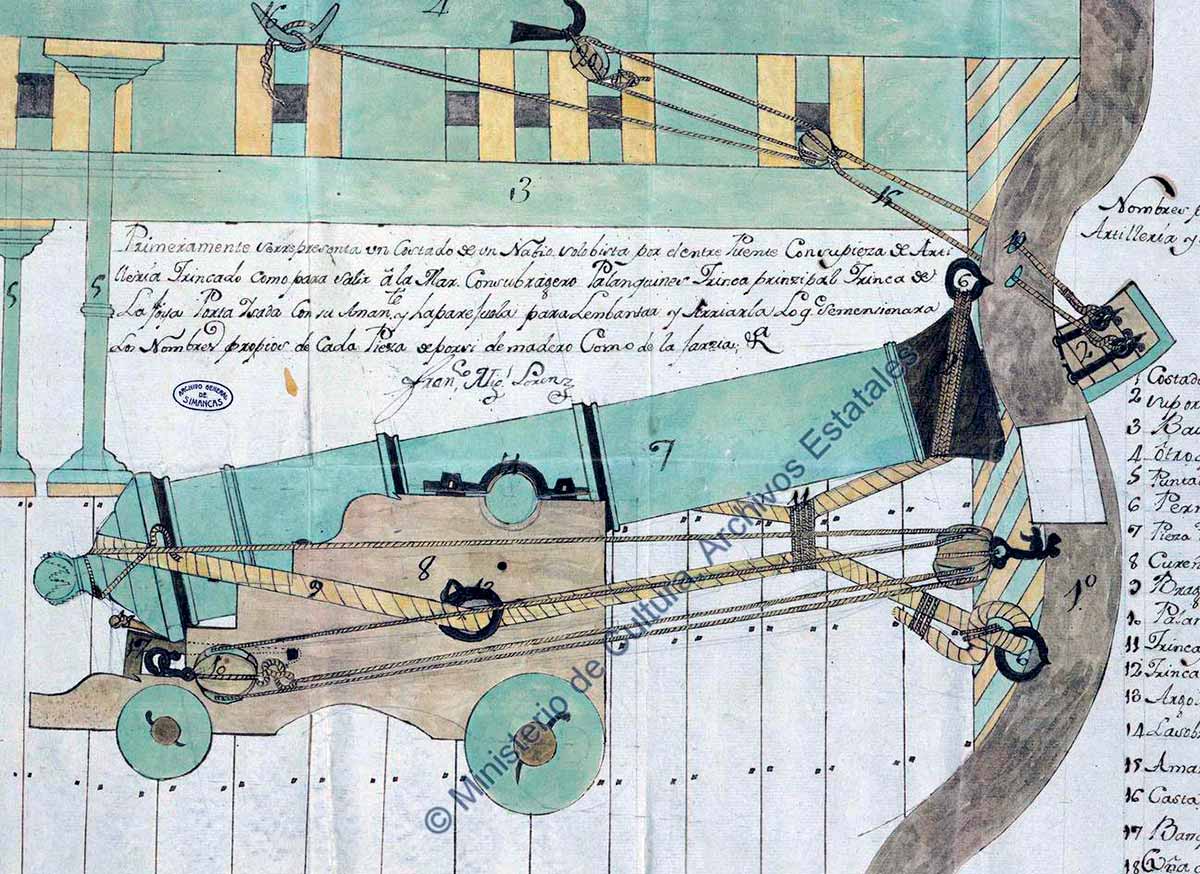 4
16
3
15
Primeramente serrepresenta vn Costado de vn Nabio solobista por el entre Puente Consupieza de Arti-
lleria Trincado como para salir â la Mar. Consubragero Palanquines Trinca prinzipal Trinca de
La Joya Porta Isada Con su Aman.te y Laparejuela para Lenbantar y Arriarla Lo q.e semensionara
Los Nombres propios de Cada Pieza deporsi de madero Como de la Jarzia;
Fran.co Mig.l Lorenz
ARCHIVO GENERAL
DE
SIMANCAS
5
5
6
2
7
11
8
9
10
1º
Nombres
Artillería y
1 Costad
2 supor
3 Ba
4 Otro
5 Punta
6 Pern
7 Pieza
8 Curen
9 Brag
10 Palan
11 Trinca
12 Trinca
13 Argo
14 Lasob
15 Ama
16 Casta
17 Banq
18 Cuña
© Ministerio de Cultura. Archivos Estatales